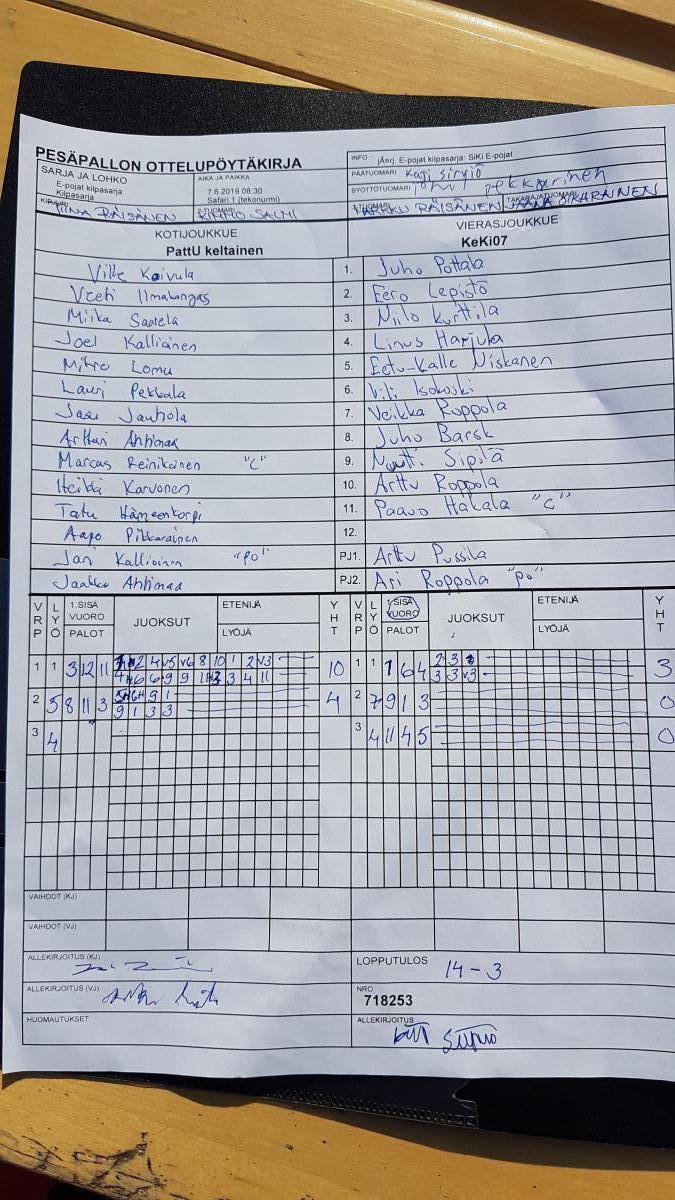 PESÄPALLON OTTELUPÖYTÄKIRJA
INFO jÄnj. E-pojat kilpasarja: SiKi E-pojat
SARJA JA LOHKO
E-pojat kilpasarja
Kilpasarja
AIKA JA PAIKKA
7.6.2019 08:30
Safari 1 (tekonurmi)
PÄÄTUOMARI
SYÖTTÖTUOMARI
KIRJURI TIINA RÄISÄNEN
SALMI
MARKKU RÄISÄNEN
TAKARAJATUOMARI JAANA
KOTIJOUKKUE
PattU keltainen
VIERASJOUKKUE
KeKi07
Ville Koivula 1. Juho Pottala
Veeti Ilmakangas 2. Eero Lepistö
Miika Saarela 3. Niilo Kurttila
Joel Kallioinen 4. Linus Harjula
Mitro Lomu 5. Eetu-Kalle Niskanen
Lauri Pekkala 6. Isokoski
Jasu Jauhola 7. Veikka Roppola
Artturi Ahtimaa 8. Juho Barsk
Marcus Reinikainen "C" 9. Sipilä
Heikki Karvonen 10. Arttu Roppola
Tatu Hämeenkorpi 11. Paavo Hakala "C"
Aapo Pikkarainen 12.
Jari Kallioinen "PO" PJ1. Arttu Pussila
Jaakko Ahtimaa PJ2. Ari Roppola "PO"
VRP LYÖ 1.SISÄ VUORO PALOT JUOKSUT ETENIJÄ LYÖJÄ YHT VRP LYÖ 1.SISÄ VUORO PALOT JUOKSUT ETENIJÄ LYÖJÄ YHT
1 1 3 12 11 10 1 1 1 6 4 3
2 5 8 11 3 4 2 7 9 1 3 0
9 1 3 3
3 4 3 4 11 4 5 0
VAIHDOT (KJ)
VAIHDOT (VJ)
ALLEKIRJOITUS (KJ)
LOPPUTULOS 14-3
ALLEKIRJOITUS (VJ)
NRO
718253
HUOMAUTUKSET
ALLEKIRJOITUS